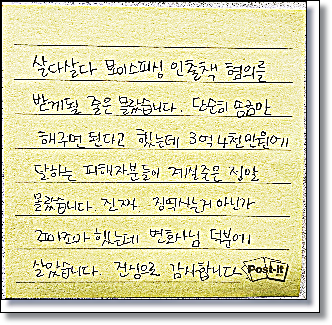 살다살다 보이스피싱 인출책 혐의를
받게될 줄은 몰랐습니다. 단순히 송금만
해주면 된다고 했는데 3억 4천만원에
달하는 피해자분들이 계실줄은 정말
몰랐습니다. 진짜.. 징역사는거 아닌가
조마조마 했는데 변호사님 덕분에
살았습니다. 진심으로 감사합니다.
Post-it